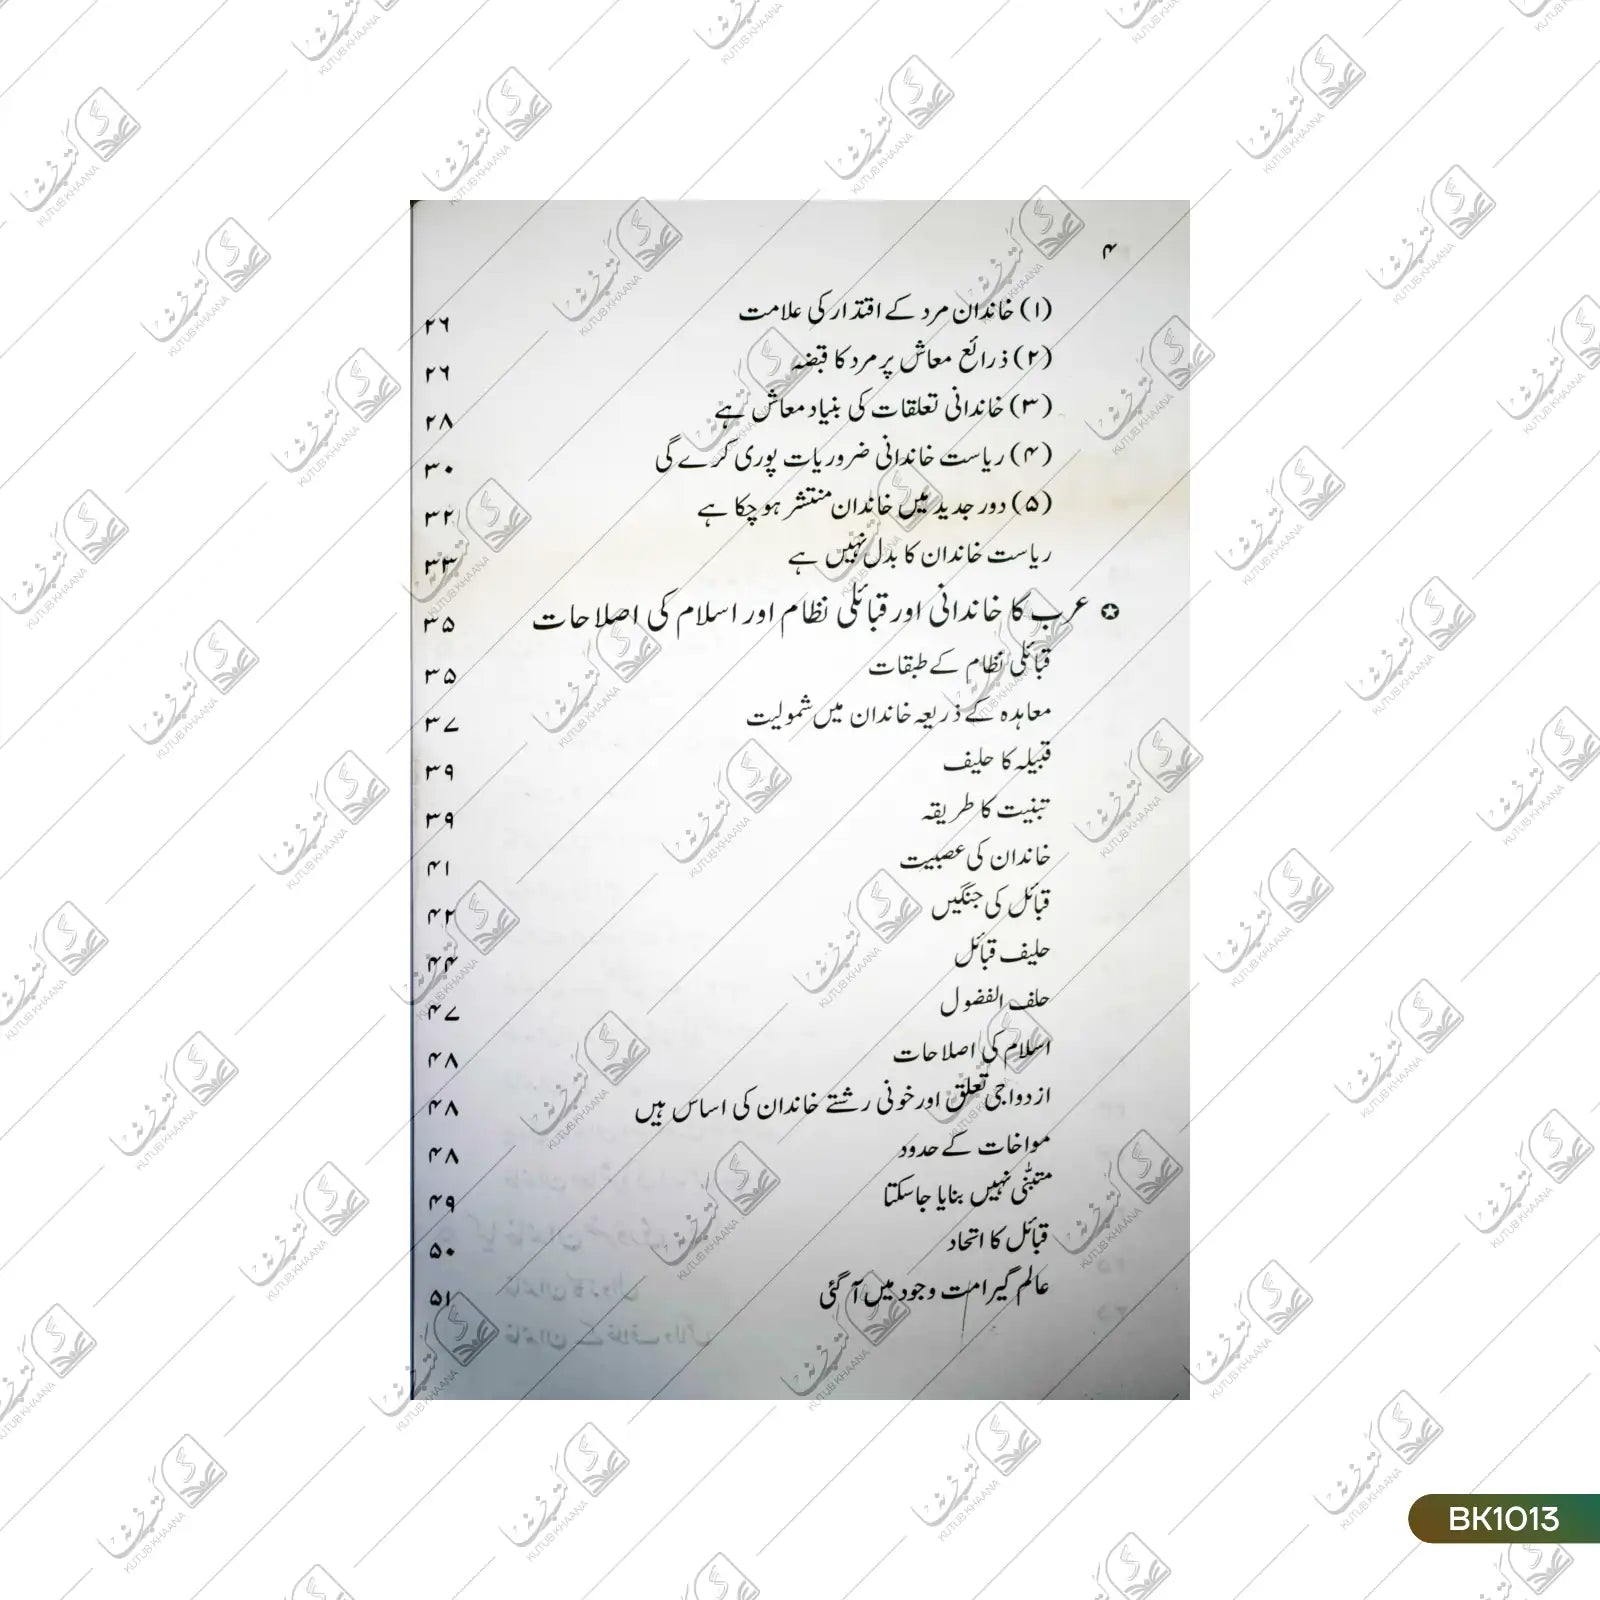 ۴
(۱) خاندان مرد کے اقتدار کی علامت ۲۶
(۲) ذرائع معاش پر مرد کا قبضہ ۲۶
(۳) خاندانی تعلقات کی بنیاد معاش ہے ۲۸
(۴) ریاست خاندانی ضروریات پوری کرے گی ۳۰
(۵) دور جدید میں خاندان منتشر ہو چکا ہے ۳۲
ریاست خاندان کا بدل نہیں ہے ۳۳
✪ عرب کا خاندانی اور قبائلی نظام اور اسلام کی اصلاحات ۳۵
قبائلی نظام کے طبقات ۳۵
معاہدہ کے ذریعہ خاندان میں شمولیت ۳۷
قبیلہ کا حلیف ۳۹
تبنیت کا طریقہ ۳۹
خاندان کی عصبیت ۴۱
قبائل کی جنگیں ۴۲
حلیف قبائل ۴۴
حلف الفضول ۴۷
اسلام کی اصلاحات ۴۸
ازدواجی تعلق اور خونی رشتے خاندان کی اساس ہیں ۴۸
مواخات کے حدود ۴۸
متبنّٰی نہیں بنایا جاسکتا ۴۹
قبائل کا اتحاد ۵۰
عالم گیر امت وجود میں آ گئی ۵۱
BK1013
کتب خانہ
KUTUB KHAANA